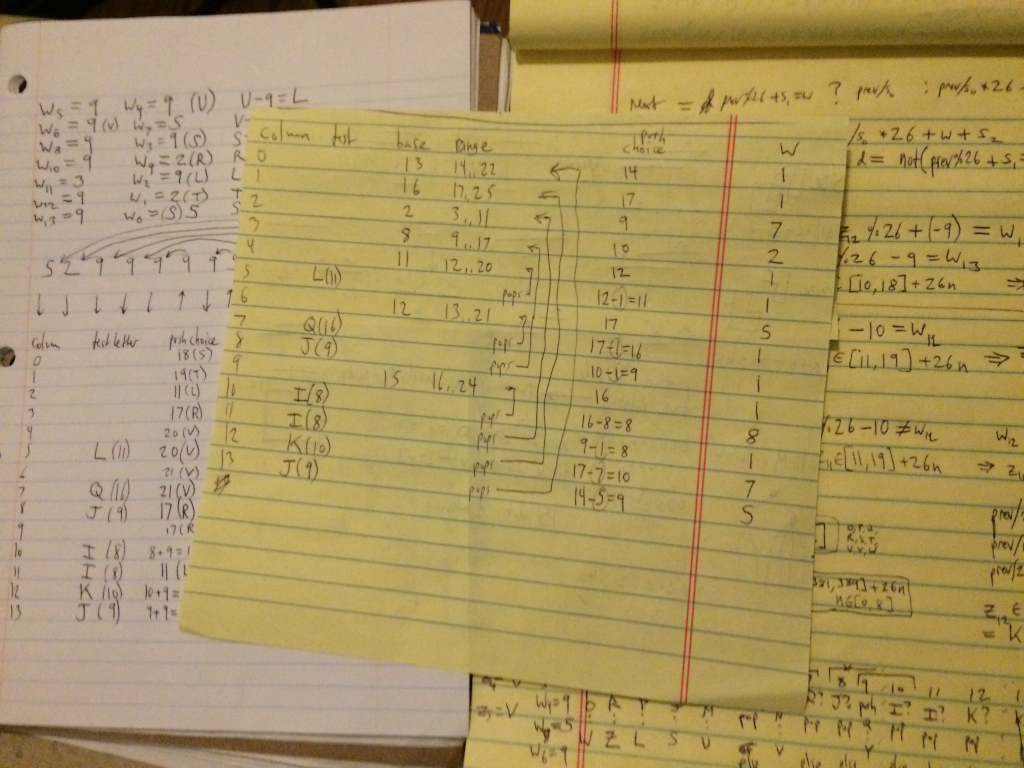 W5 = 9 W4 = 9 (V) V-9 = L
W6 = 9 (V) W7 = 5
W8 = 9 W3 = 9 (S)
W10 = 9 W9 = 2 (R) R
W11 = 3 W2 = 9 (L) L
W12 = 9 W1 = 2 (T) T
W13 = 9 W0 = (S) 5 S
5 2 9 9 9 9 9
↓ ↓ ↓ ↓ ↓ ↑ ↓ ↑
Column test letter push choice
0 18 (S)
1 19 (T)
2 11 (L)
3 17 (R)
4 20 (V)
5 L (11) 20 (V)
6 21 (V)
7 Q (16) 21 (V)
8 J (9) 17 (R)
9 17 (R
10 I (8) 8+9=1
11 I (8) 11 (L
12 K (10) 10+9=
13 J (9) 9+9=
Column test base range push choice W
0 13 14..22 14 1
1 16 17..25 17 1
2 2 3..11 9 7
3 8 9..17 10 2
4 11 12..20 12 1
5 L(11) pops 12-1=11 1
6 12 13..21 17 5
7 Q(16) pops 17-1=16 1
8 J(9) pops 10-1=9 1
9 15 16..24 16 1
10 I(8) pops 16-8=8 8
11 I(8) pops 9-1=8 1
12 K(10) pops 17-7=10 7
13 J(9) pops 14-5=9 5
next = prev%26 + s1 = w ? prev/s0 : prev/s0 * 26
/s0 * 26 + w + s2
d = not(prev%26 + s1 =
z12 % 26 + (-9) = W1
% 26 - 9 = W13
∈ [10,18] + 26n ⇒
-10 = W12
∈ [11,19] + 26n ⇒
% 26 - 10 ≠ W12 W12
∈ [11,19] + 26n ⇒ z
prev/
prev/
prev/2
381, 389] + 26n
n∈[0,8]
z12 ∈
= K
8 9 10 11 12
J? push I? I? K?
W4=9
z7=V W7=5
W6=9